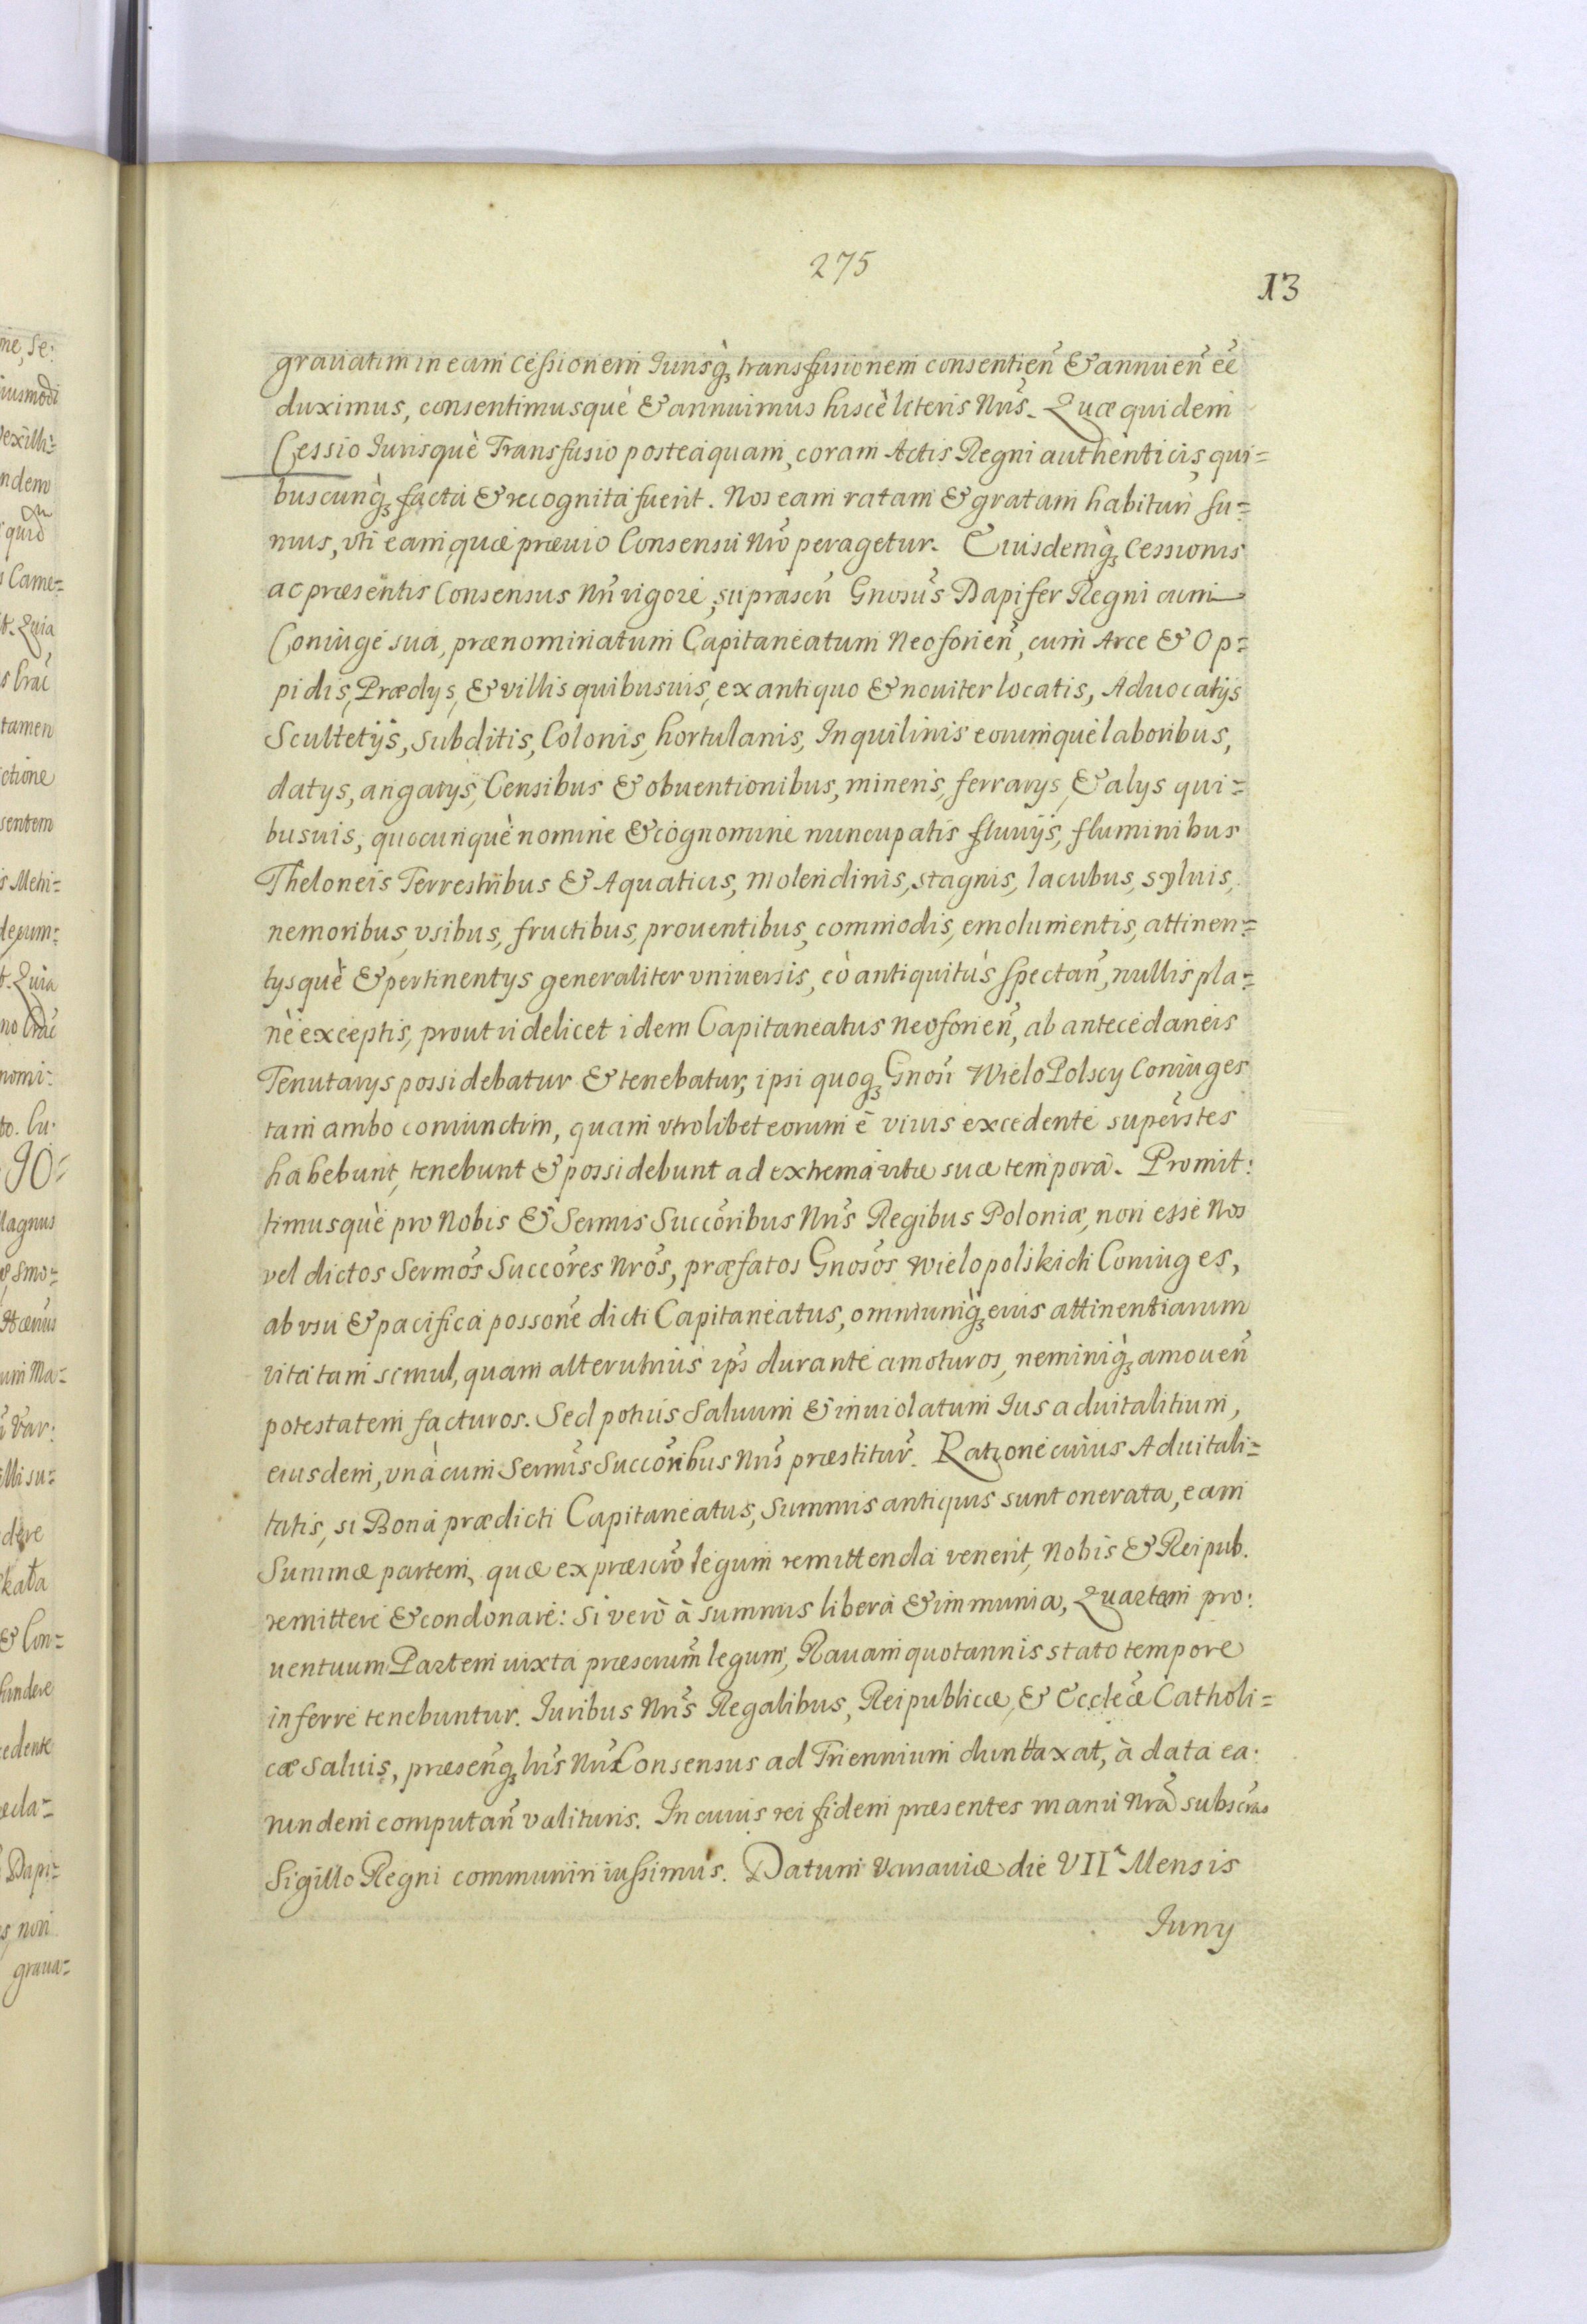 275
13
grauatim in eam cessionem Iurisq́ transfusionem consentieñ & annuieñ eẽ
duximus, consentimusquè & annuimus hiscè literis Nr̃is. Quæ quidem
Cessio Iurisquè Transfusio posteaquam, coram Actis Regni authenticis, qui=
buscunq́ facta & recognita fuerit. Nos eam ratam & gratam habituri su=
mus, vti eam, quæ præuio Consensu Nr̃o peragetur. Eiusdemq́ Cessionis
ac præsentis Consensus Nr̃i vigore, suprascri Gnosus Dapifer Regni cum
Coniuge sua, prænominatum Capitaneatum Neoforień, cum Arce & Op=
pidis, Prædys, & villis quibusuis, ex antiquo & nouiter locatis, Aduocatijs
Scultetijs, Subditis, Colonis, hortulanis, Inquilinis eorumquè laboribus,
datys, angarys, Censibus & obuentionibus, mineris, ferrarys, & alys qui=
busuis, quocunquè nomine & cognomine nuncupatis fluuijs, fluminibus
Theloneis Terrestribus & Aquaticis, Molendinis, stagnis, lacubus, syluis,
nemoribus, vsibus, fructibus, prouentibus, commodis, emolumentis, attinen=
tysquè & pertinentys generaliter vniuersis, eò antiquitùs spectañ, nullis pla=
nè exceptis, prout videlicet idem Capitaneatus Neoforień, ab antecedaneis
Tenutarys possidebatur & tenebatur, ipsi quoq́ Gnosi WieloPolscy Coniuges
tam ambo coniunctim, quam vtrolibet eorum è viuis excedente superstes
habebunt, tenebunt & possidebunt ad extrema vitæ suæ tempora. Promit:
timusquè pro Nobis & Sermis Succoribus Nr̃is Regibus Poloniæ, non esse Nos
vel dictos Sermos Succores Nr̃os, præfatos Gnosos Wielopolskich Coniuges,
ab vsu & pacifica possone dicti Capitaneatus, omniumq́ eius attinentiarum
vita tam simul, quam alterutrius ip̃s durante amoturos, neminiq́ amoueñ
potestatem facturos. Sed potius Saluum & inuiolatum Ius aduitalitium,
eiusdem, vnà cum Sermis Succoribus Nr̃is præstitur̃. Ratione cuius Aduitali=
tatis, si Bona prædicti Capitaneatus, Summis antiquis sunt onerata, eam
Summæ partem, quæ ex præscro legum remittenda venerit, Nobis & Reipub.
remittere & condonare: Si verò à summis libera & immunia, Quartam pro:
uentuum Partem iuxta præscrum legum, Rauam quotannis stato tempore
inferre tenebuntur. Iuribus Nr̃is Regalibus, Reipublicæ, & Eccleæ Catholi=
cæ Saluis, præsenq́ hũs Nr̃i Consensus ad Triennium duntaxat, à data ea:
rundem computañ valituris. In cuius rei fidem præsentes manu Nr̃a subscras
Sigillo Regni communiri iussimus. Datum Varsauiæ die VII.ª Mensis
Iuny